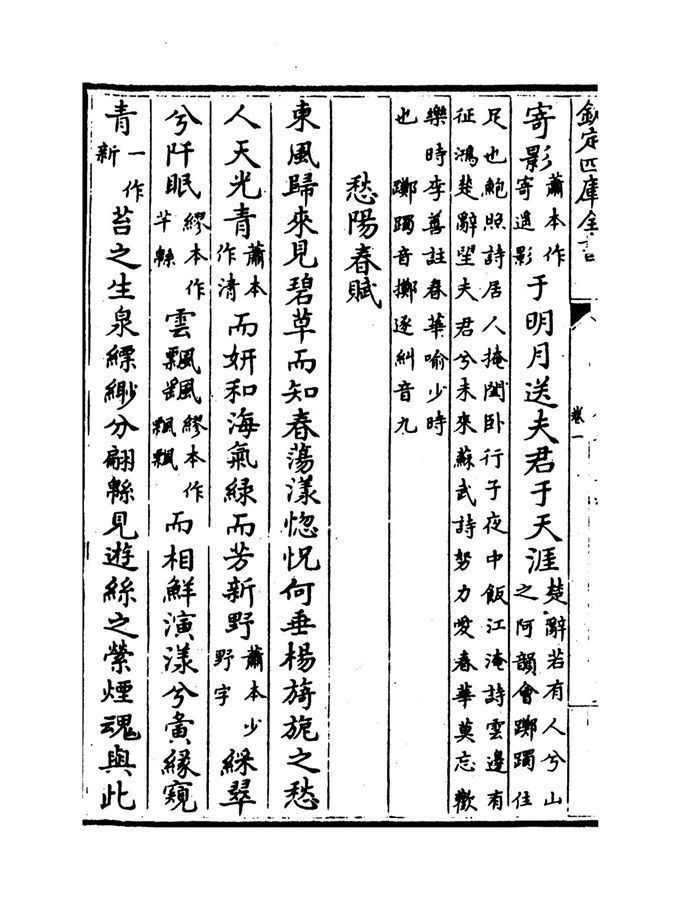 欽定四庫全書
卷一
寄影蕭本作寄遥影于明月送夫君于天涯楚辭若有人兮山之阿韻會躑躅住
足也鮑照詩居人掩閨卧行子夜中飯江淹詩雲邊有
征鴻楚辭望夫君兮未來蘇武詩努力愛春華莫忘歡
樂時李善註春華喻少時
也 躑躅音擲逐糾音九
愁陽春賦
東風歸來見碧草而知春蕩漾惚怳何垂楊旖旎之愁
人天光青蕭本作清而妍和海氣緑而芳新野蕭本少野字綵翠
兮阡眠繆本作芊緜雲飄颻繆本作飄飄而相鮮演漾兮夤緣窺
青一作新苔之生泉縹緲兮翩緜見遊絲之縈煙魂與此